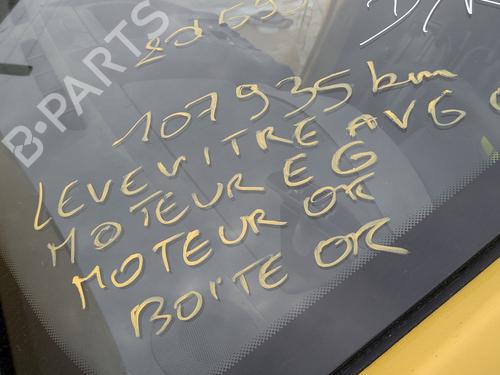 B-PARTS
107935 km
LEVEVITRE AVG
MOTEUR EG
MOTEUR OK
BOITE OK